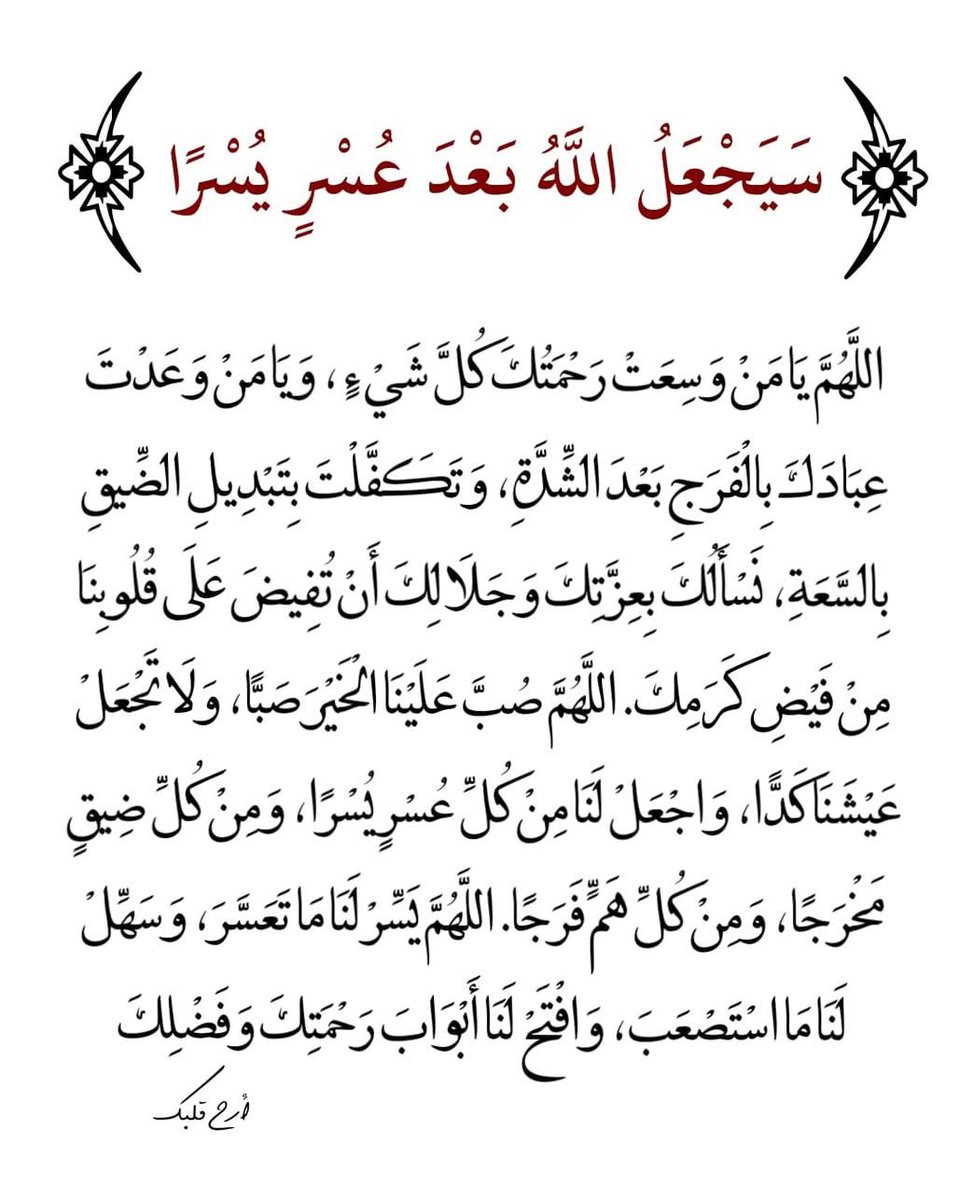 سَيَجْعَلُ اللَّهُ بَعْدَ عُسْرٍ يُسْرًا
اللَّهُمَّ يَا مَنْ وَسِعَتْ رَحْمَتُكَ كُلَّ شَيْءٍ، وَيَا مَنْ وَعَدْتَ
عِبَادَكَ بِالْفَرَجِ بَعْدَ الشِّدَّةِ، وَتَكَفَّلْتَ بِتَبْدِيلِ الضِّيقِ
بِالسَّعَةِ، نَسْأَلُكَ بِعِزَّتِكَ وَجَلَالِكَ أَنْ تُفِيضَ عَلَى قُلُوبِنَا
مِنْ فَيْضِ كَرَمِكَ. اللَّهُمَّ صُبَّ عَلَيْنَا الْخَيْرَ صَبًّا، وَلَا تَجْعَلْ
عَيْشَنَا كَدًّا، وَاجْعَلْ لَنَا مِنْ كُلِّ عُسْرٍ يُسْرًا، وَمِنْ كُلِّ ضِيقٍ
مَخْرَجًا، وَمِنْ كُلِّ هَمٍّ فَرَجًا. اللَّهُمَّ يَسِّرْ لَنَا مَا تَعَسَّرَ، وَسَهِّلْ
لَنَا مَا اسْتَصْعَبَ، وَافْتَحْ لَنَا أَبْوَابَ رَحْمَتِكَ وَفَضْلِكَ
أرح قلبك